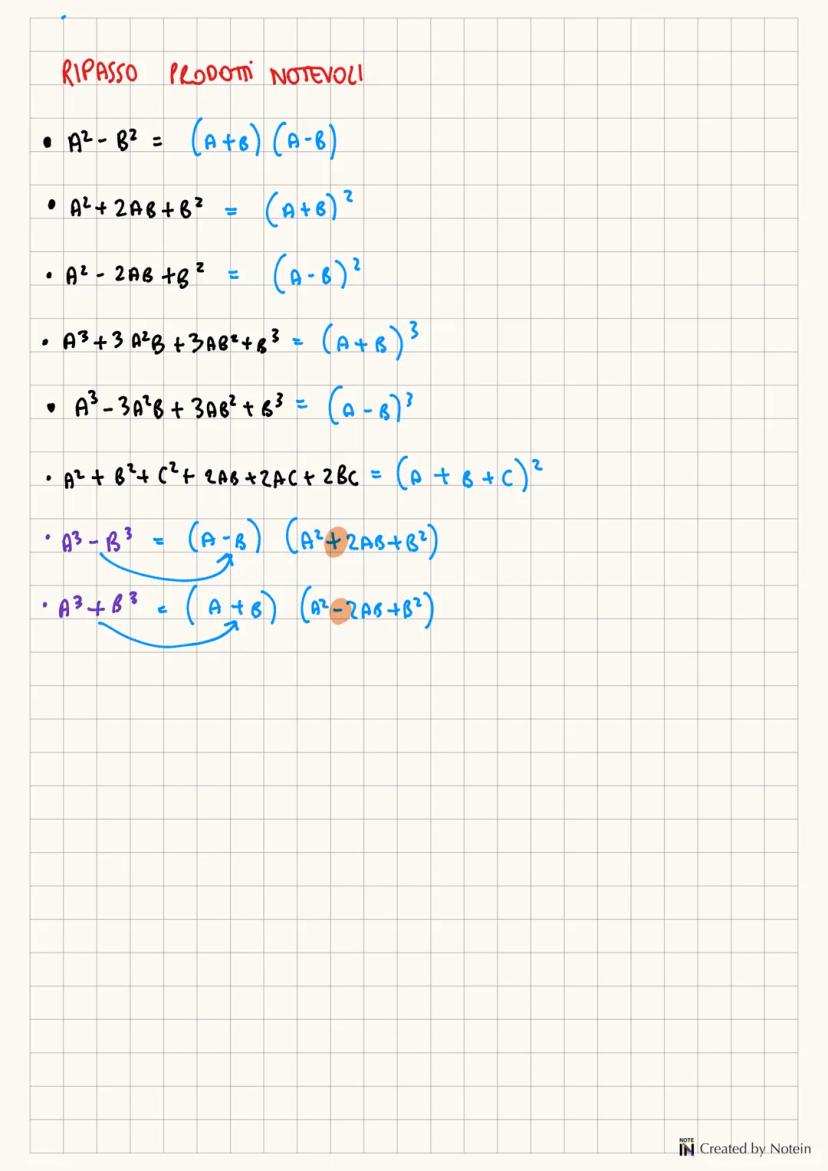 RIPASSO PRODOTTI NOTEVOLI
• A² - B² = (A+B) (A-B)
• A² + 2AB + B² = (A+B)²
• A² - 2AB + B² = (A-B)²
• A³ + 3A²B + 3AB² + B³ = (A+B)³
• A³ - 3A²B + 3AB² + B³ = (A-B)³
• A² + B² + C² + 2AB + 2AC + 2BC = (A + B + C)²
• A³ - B³ = (A-B) (A² + 2AB + B²)
• A³ + B³ = (A+B) (A² - 2AB + B²)
NOTE IN Created by Notein